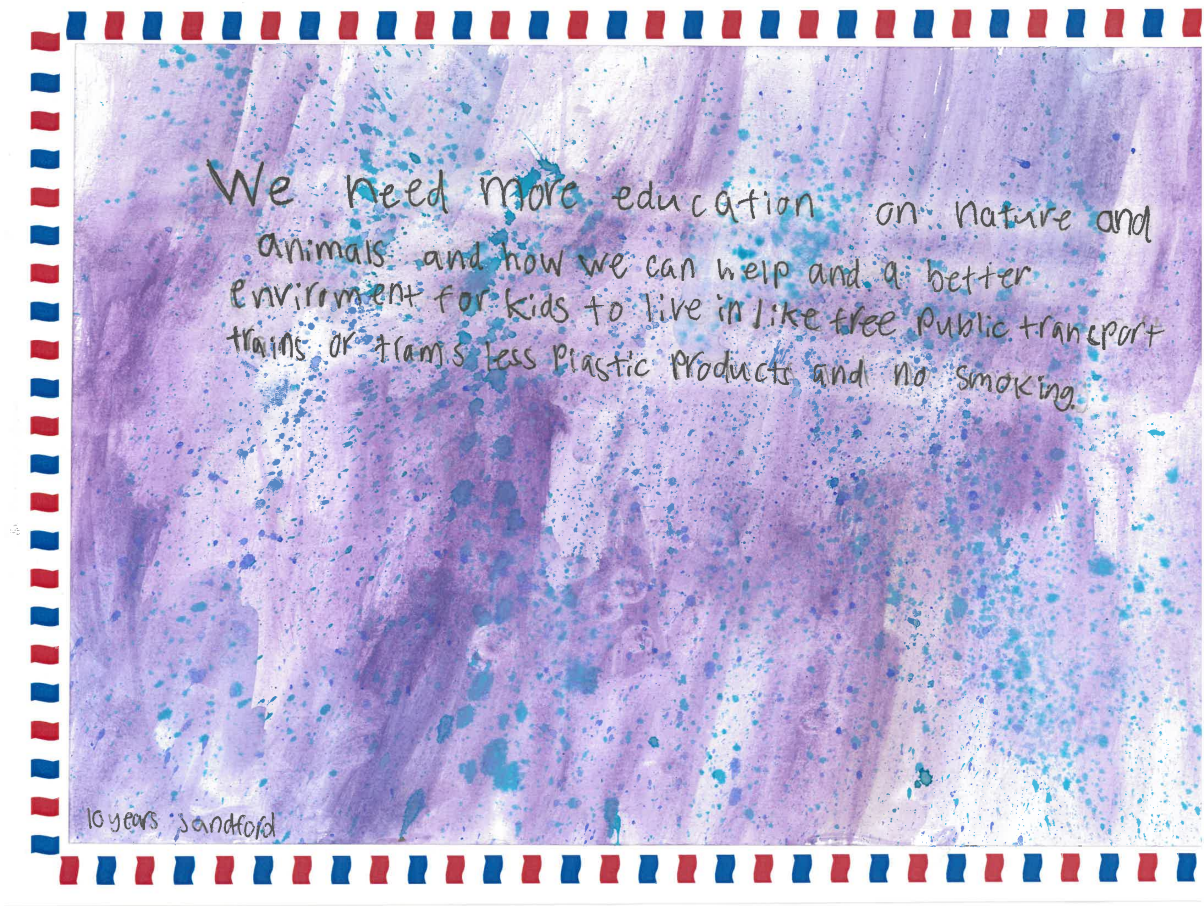 We need more education on nature and
animals and how we can help and a better
enviroment for kids to live in like free public transport
trains or trams less plastic products and no smoking.
10 years Sandford